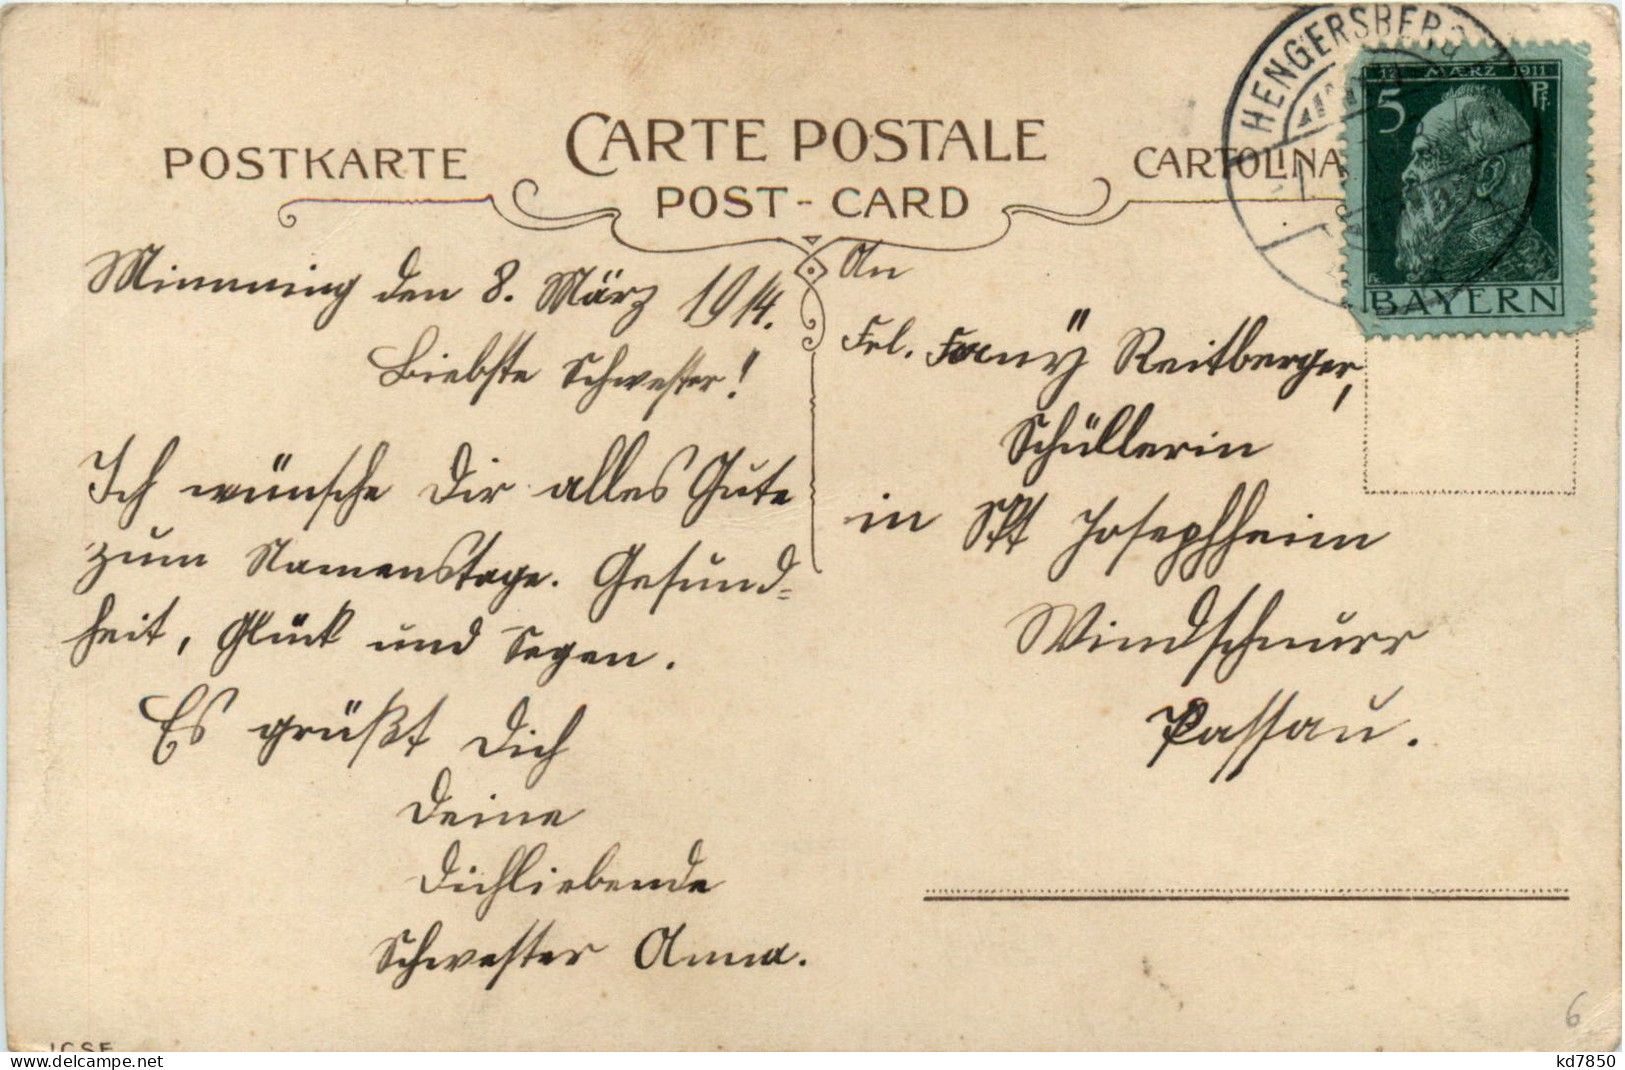 POSTKARTE
CARTE POSTALE
POST-CARD
CARTOLINA
HENGERSBERG
12 MÆRZ 1911
5 Pf
BAYERN
Mimming den 8. März 1914.
Liebste Schwester!
Ich wünsche Dir alles Gute
zum Namenstage. Gesund=
heit, Glück und Segen.
Es grüßt Dich
Deine
Dichliebende
Schwester Anna.
An
Frl. Fanny Reitberger,
Schüllerin
in Skt Josephheim
Windschnurr
Passau.
6
www.delcampe.net
kd7850